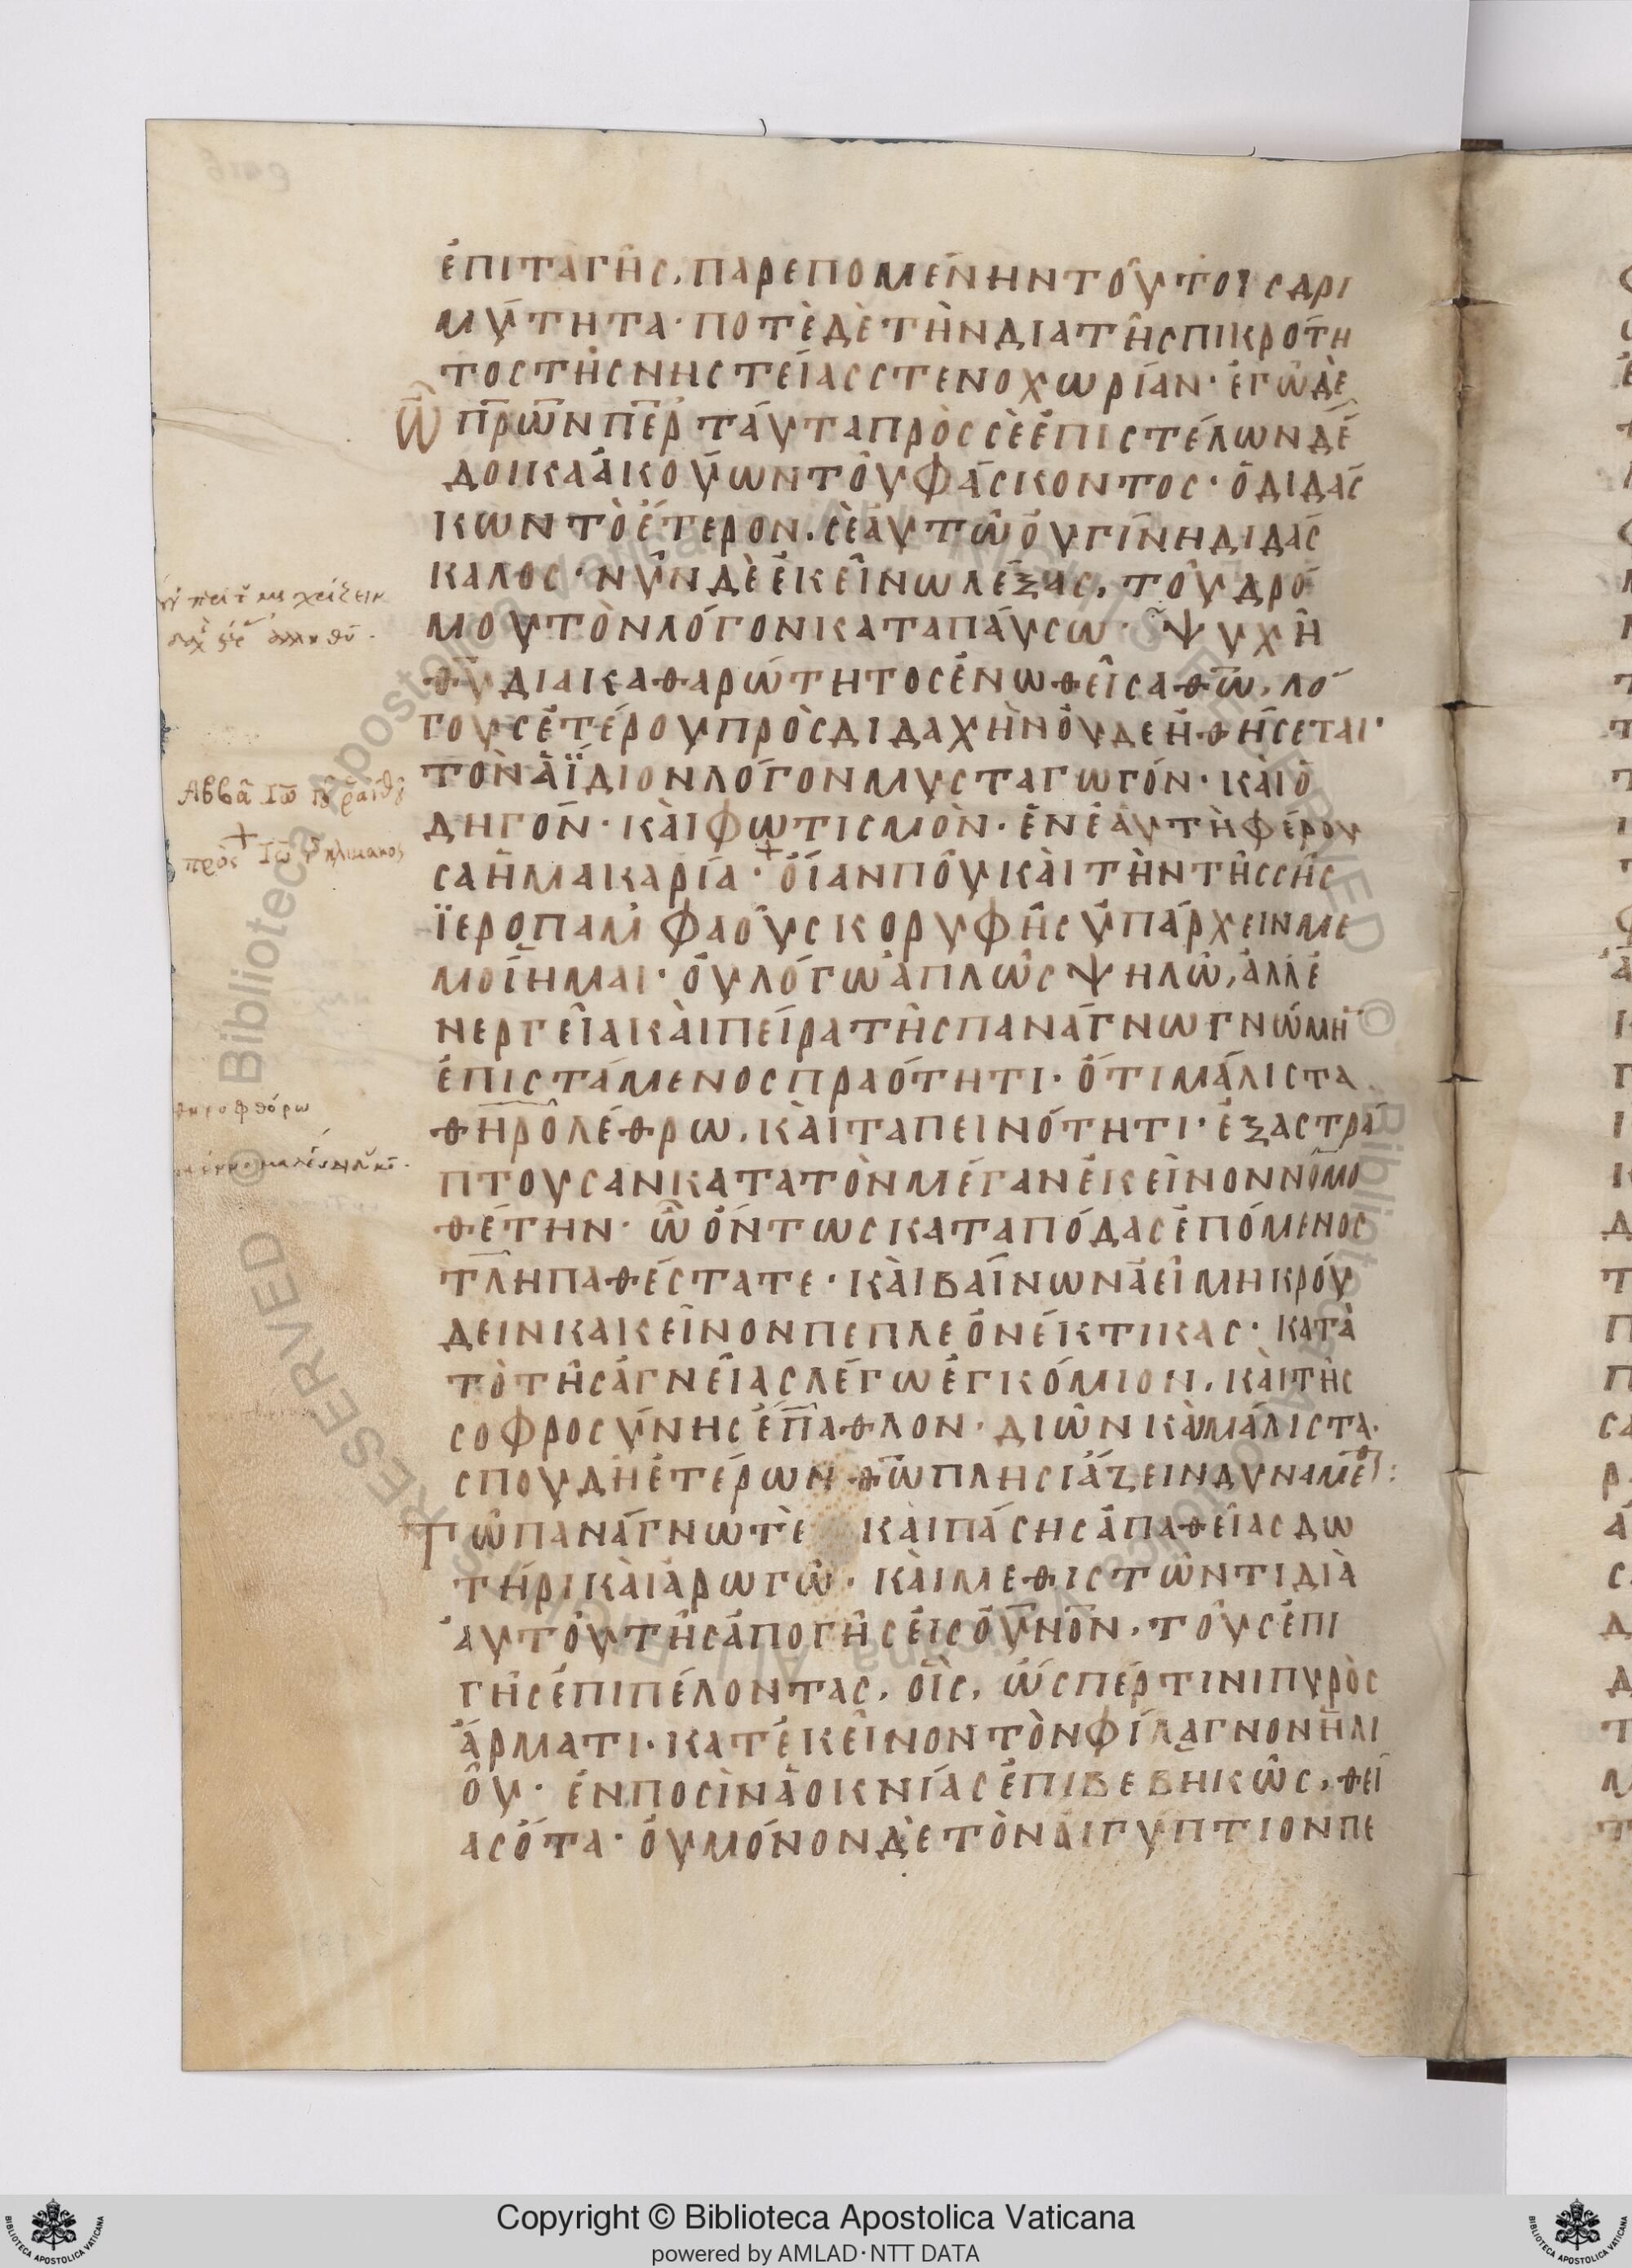 ἐπιταγῆς, παρεπομένην τούτοις δρι
μύτητα· ποτὲ δὲ τὴν διὰ τῆς πικρότη
τος τῆς νηστείας στενοχωρίαν· ἐγὼ δὲ
ὦ π̅ρ̅ω̅ν̅ π̅ε̅ρ̅ ταῦτα πρὸς σὲ ἐπιστέλων δέ
δοικα ἀκούων τοῦ φάσκοντος· ὁ διδάσ
κων τὸ ἕτερον, σεαυτῶ οὐ γίνη διδάσ
καλος· νῦν δὲ ἐκεῖνω λέξας, τοῦ δρό
μου τὸν λόγον καταπαύσω· ψυχὴ
θ̅υ̅ διαι καθαρώτητος ἑνωθεῖσα θ̅ω̅, λό
γους ἑτέρου πρὸς διδαχὴν οὐ δεηθήσεται·
τὸν ἀΐδιον λόγον μυσταγωγόν· καὶ ὁ
δηγόν· καὶ φωτισμὸν· ἐν ἑαυτὴ φέρου
σα ἡ μακαρία· οἵαν που καὶ τὴν τῆς σῆς
ϊεροπαμφαοῦς κορυφῆς ὑπάρχειν με
μοίημαι· οὐ λόγω ἁπλῶς ψηλῶ, ἀλλ ἐ
νεργεῖα καὶ πείρα τῆς πανάγνω γνώμη
ἐπιστάμενος πραότητι· ὅτι μάλιστα
θηρολέθρω, καὶ ταπεινότητι· ἐξαστρά
πτουσαν κατα τὸν μέγαν ἐκεῖνον νομο
θέτην· ὧ ὄντως κατα πόδας ἑπόμενος
τληπαθέστατε· καὶ βαίνων ἀεὶ μηκροῦ
δειν κακεῖνον πεπλεόνέκτικας· κατὰ
τὸ τῆς ἁγνείας λέγω ἐγκόμιον, καὶ τῆς
σοφροσύνης ἔπαθλον· δι ὧν καὶ μάλιστα·
σπουδὴ ἑτέρων θ̅ω̅ πλησιάζειν δυνάμεθ:
Τῶ πανάγνω τὲ καὶ πάσης ἀπαθεῖας δω
τῆρι καὶ ἀρωγῶ· καὶ μεθιστῶντι διὰ
αὐτοῦ τῆς ἀπογῆς εἰς οὐ̅ν̅ο̅ν̅, τοὺς ἐπι
γῆς ἐπιπέλοντας, οἷς, ὥσπέρ τινι πυρὸς
ἅρματι· κατ ἐκεῖνον τὸν φίλαγνον ἡλι
οῦ· ἐν ποσὶν ἀοκνίας ἐπιβεβηκῶς, θεί
ασότα· οὐ μόνον δὲ τὸν αἰγύπτιον πε
Αββᾶ Ιω
πρὸς Ιω
θηροφθόρω